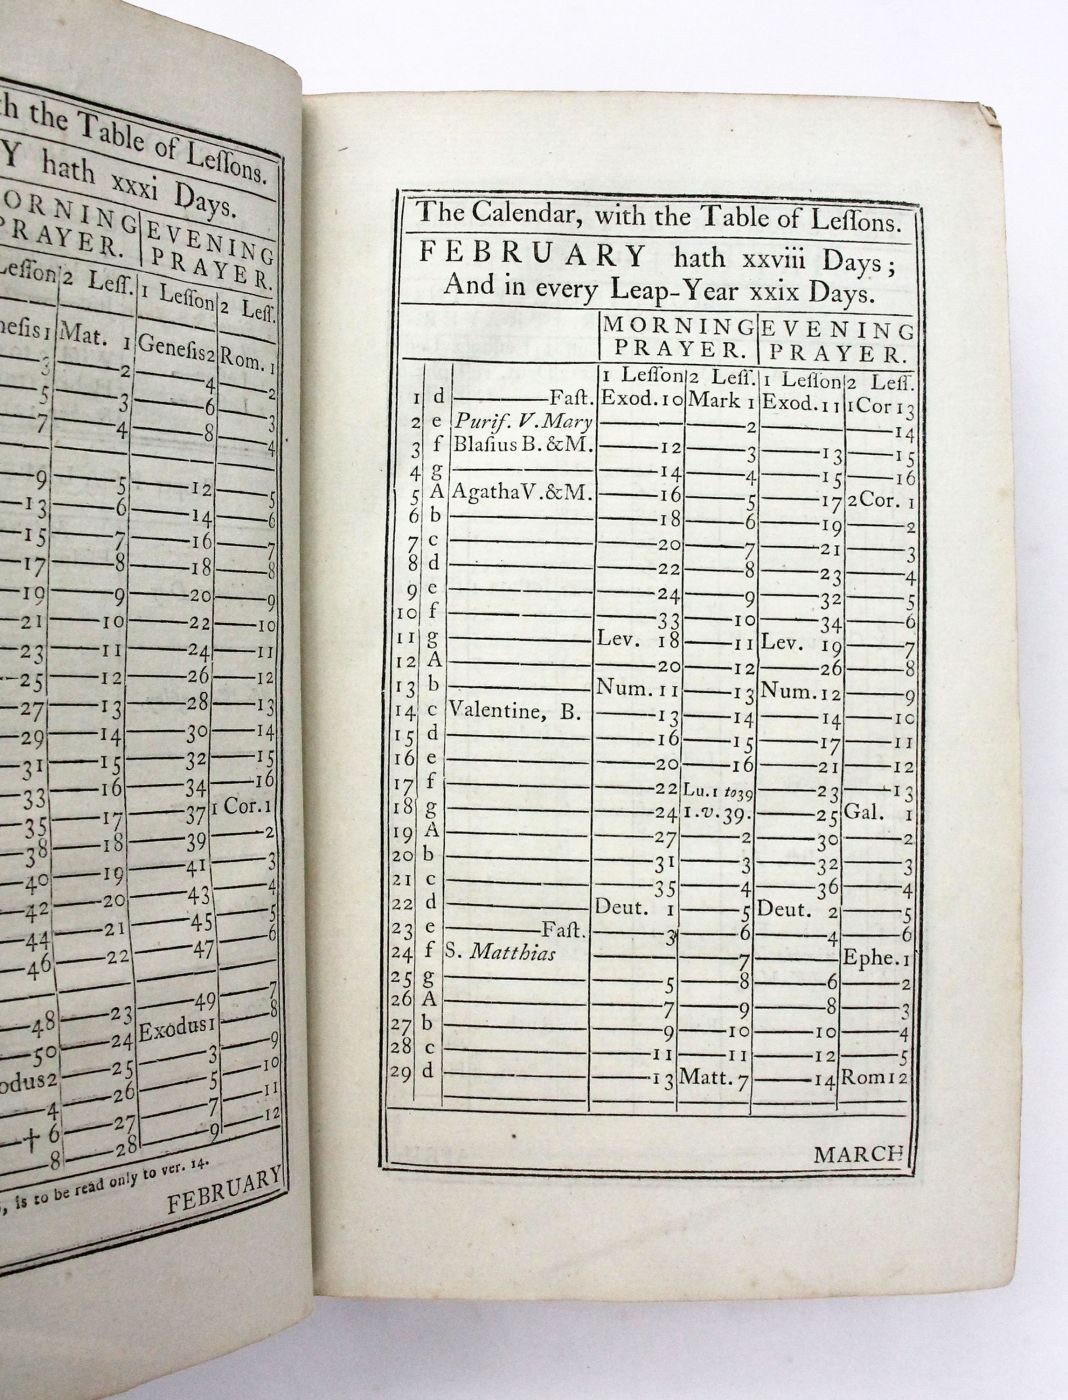 th the Table of Leſſons.
Y hath xxxi Days.
ORNING EVENING
PRAYER. PRAYER.
Leſſon 2 Leſſ. 1 Leſſon 2 Leſſ.
neſis 1 Mat. 1 Geneſis 2 Rom. 1
3 2 4 2
5 3 6 3
7 4 8 4
9 5 12 5
13 6 14 6
15 7 16 7
17 8 18 8
19 9 20 9
21 10 22 10
23 11 24 11
25 12 26 12
27 13 28 13
29 14 30 14
31 15 32 15
33 16 34 16
35 17 37 1 Cor. 1
38 18 39 2
40 19 41 3
42 20 43 4
44 21 45 5
46 22 47 6
48 23 49 7
50 24 Exodus 1 8
odus 2 25 3 9
4 26 5 10
† 6 27 7 11
8 28 9 12
, is to be read only to ver. 14.
FEBRUARY
The Calendar, with the Table of Leſſons.
FEBRUARY hath xxviii Days;
And in every Leap-Year xxix Days.
MORNING EVENING
PRAYER. PRAYER.
1 Leſſon 2 Leſſ. 1 Leſſon 2 Leſſ.
1 d Faſt. Exod. 10 Mark 1 Exod. 11 1 Cor 13
2 e Purif. V. Mary 2 14
3 f Blaſius B. & M. 12 3 13 15
4 g 14 4 15 16
5 A Agatha V. & M. 16 5 17 2 Cor. 1
6 b 18 6 19 2
7 c 20 7 21 3
8 d 22 8 23 4
9 e 24 9 32 5
10 f 33 10 34 6
11 g Lev. 18 11 Lev. 19 7
12 A 20 12 26 8
13 b Num. 11 13 Num. 12 9
14 c Valentine, B. 13 14 14 10
15 d 16 15 17 11
16 e 20 16 21 12
17 f 22 Lu. 1 to 39 23 13
18 g 24 1. v. 39. 25 Gal. 1
19 A 27 2 30 2
20 b 31 3 32 3
21 c 35 4 36 4
22 d Deut. 1 5 Deut. 2 5
23 e Faſt. 3 6 4 6
24 f S. Matthias 7 Ephe. 1
25 g 5 8 6 2
26 A 7 9 8 3
27 b 9 10 10 4
28 c 11 11 12 5
29 d 13 Matt. 7 14 Rom 12
MARCH